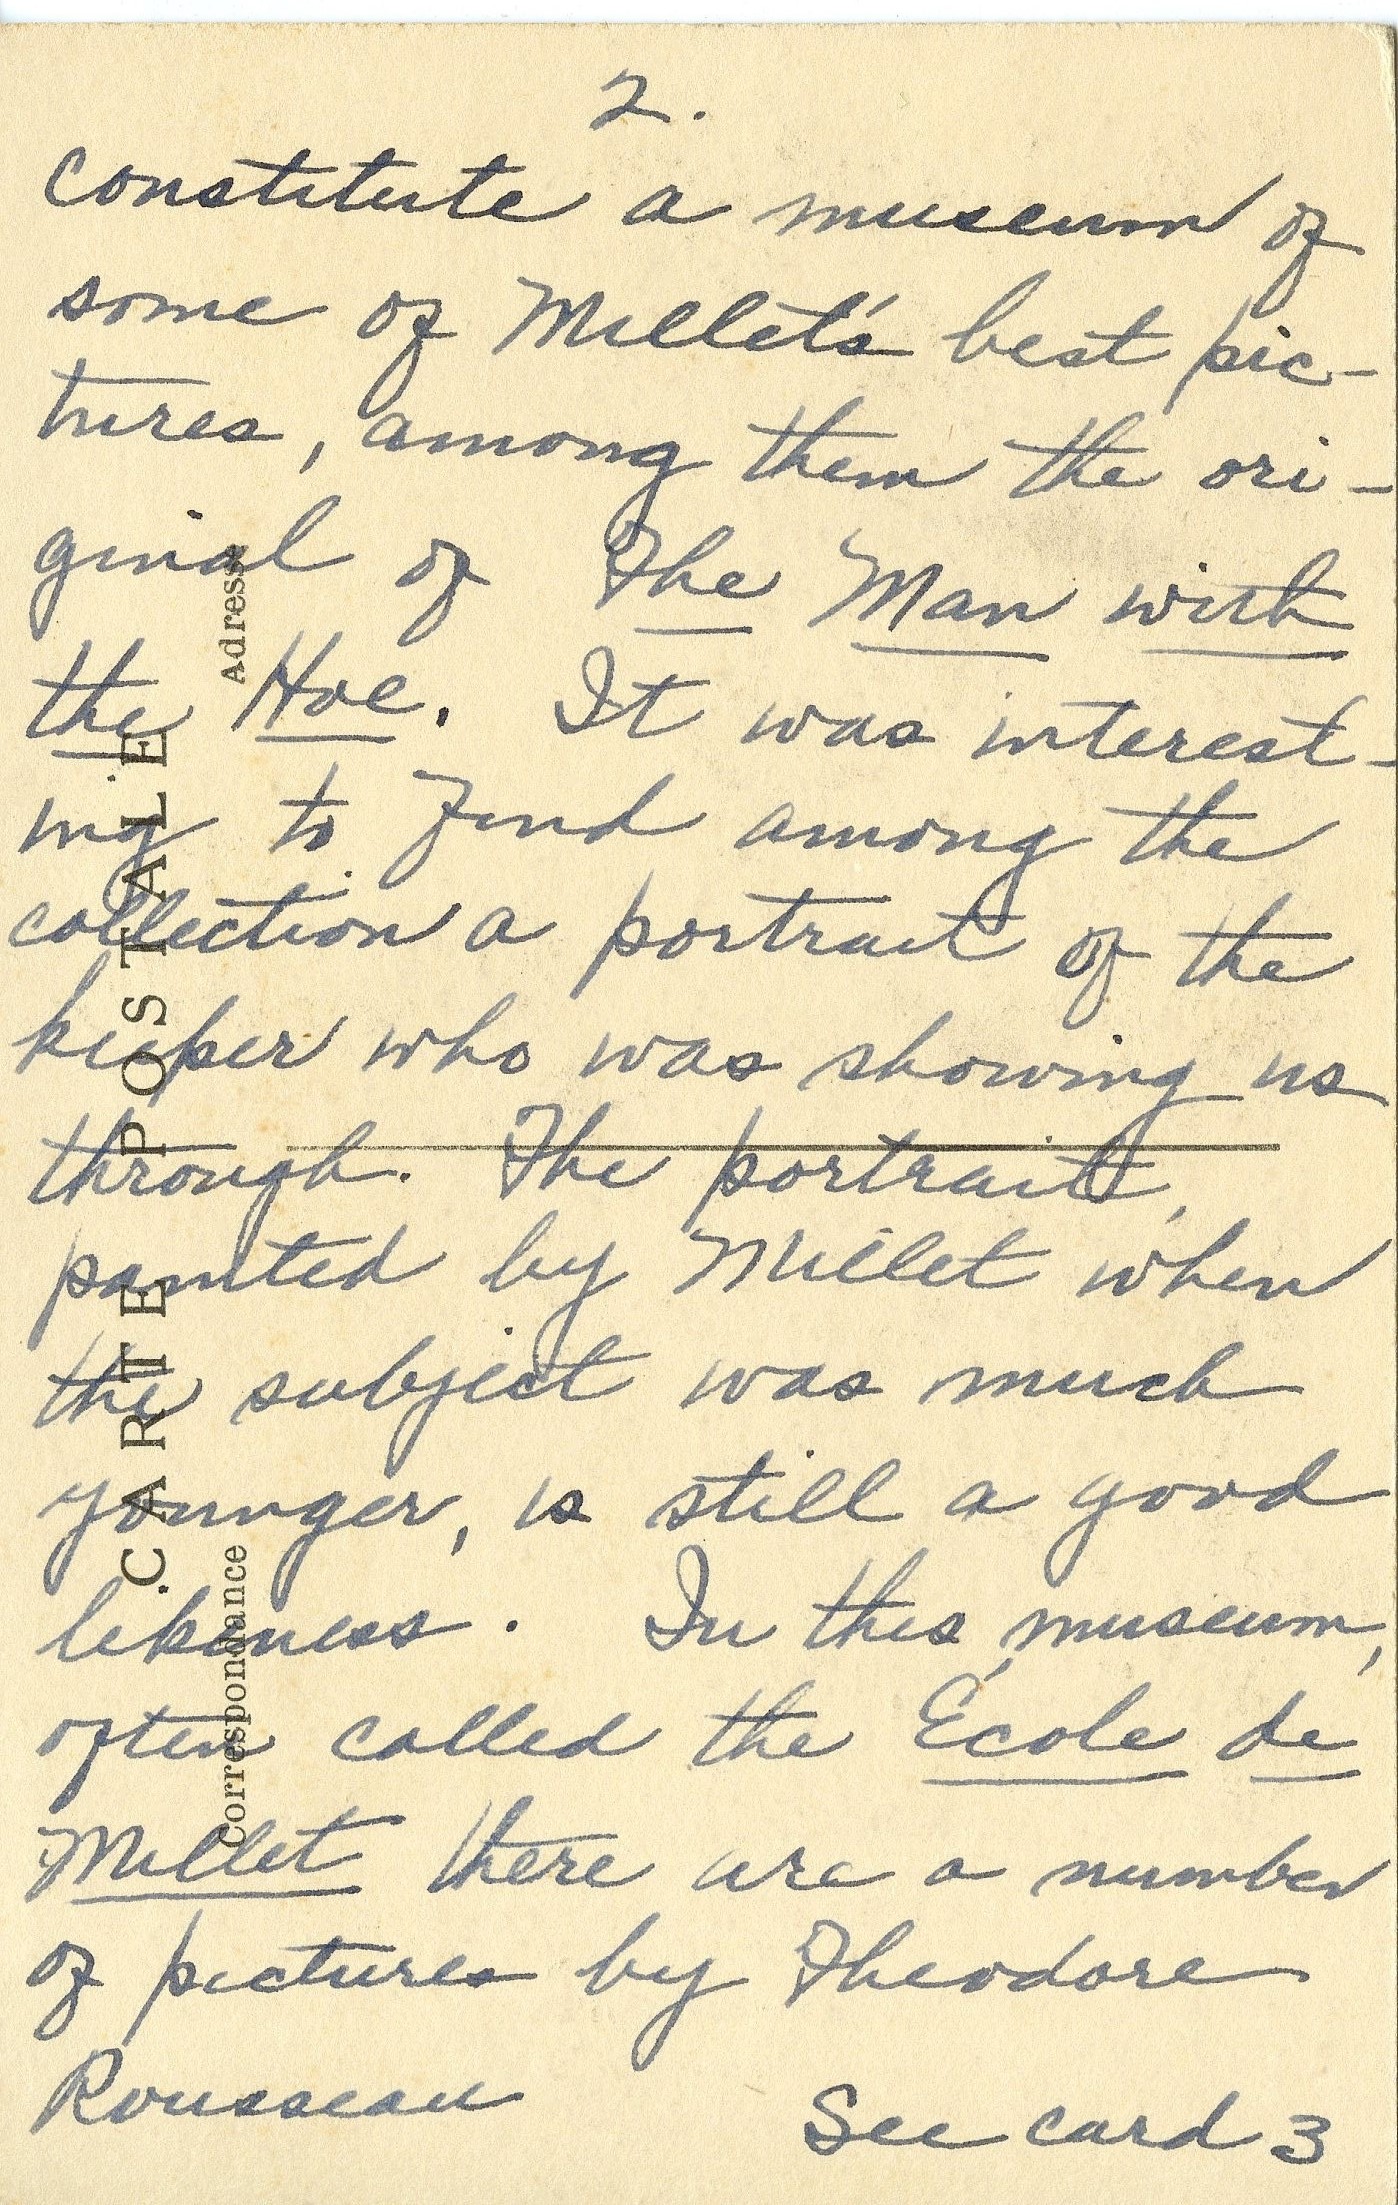 2.
constitute a museum of
some of Millet's best pic-
tures, among them the ori-
ginal of The Man with
the Hoe. It was interest-
ing to find among the
collection a portrait of the
keeper who was showing us
through. The portrait,
painted by Millet when
the subject was much
younger, is still a good
likeness. In this, museum,
often called the École de
Millet there are a number
of pictures by Theodore
Rousseau
See card 3
CARTE POSTALE
Correspondance
Adresse